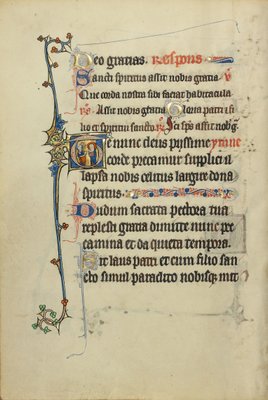 Deo gratias. Respons
Sancti spiritus assit nobis gratia. V
Que corda nostra sibi faciat habitacula
R. Assit nobis gratia. Gloria patri et fi
lio et spiritui sancto. R. Sci sps assit nob g
Te nunc deus pijssime ymne
corde precamur supplici il
lapsa nobis celitus largire dona
spiritus.
Dudum sacrata pectora tua
replesti gratia dimitte nunc pec
camina et da quieta tempora.
Sit laus patri et cum filio san
cto simul paraclito nobisque mit